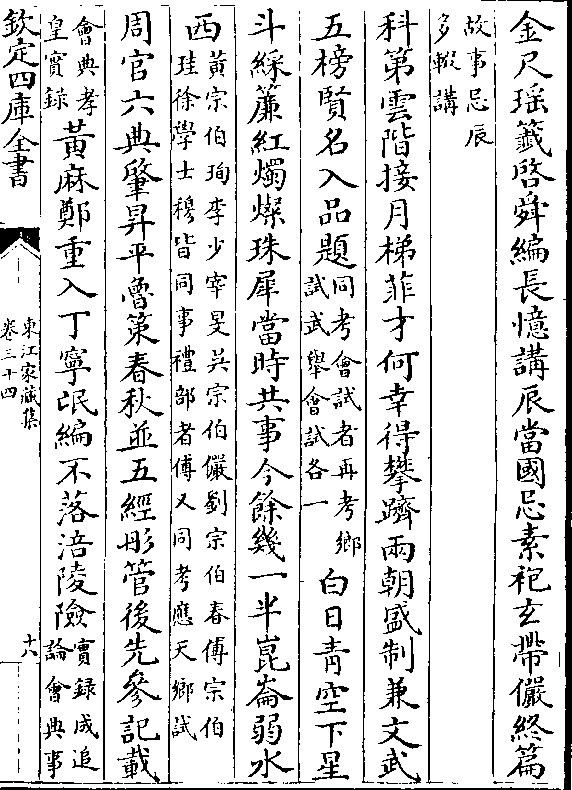 金尺瑶籖啓舜編長憶講辰當國忌素袍玄帶儼終篇
故事忌辰
多輟講
科第雲階接月梯菲才何幸得攀躋兩朝盛制兼文武
五榜賢名入品題同考會試者再考鄉
試武舉會試各一
白日青空下星
斗綵簾紅燭燦珠犀當時共事今餘幾一半崑崙弱水
西黃宗伯珣李少宰旻吳宗伯儼劉宗伯春傅宗伯
珪徐學士穆皆同事禮部者傅又同考應天鄉試
周官六典肇昇平魯策春秋並五經彤管後先參記載
會典孝
皇實録
黃麻鄭重入丁寧氓編不落涪陵險實録成追
論會典事
欽定四庫全書
東江家藏集
卷三十四
十六